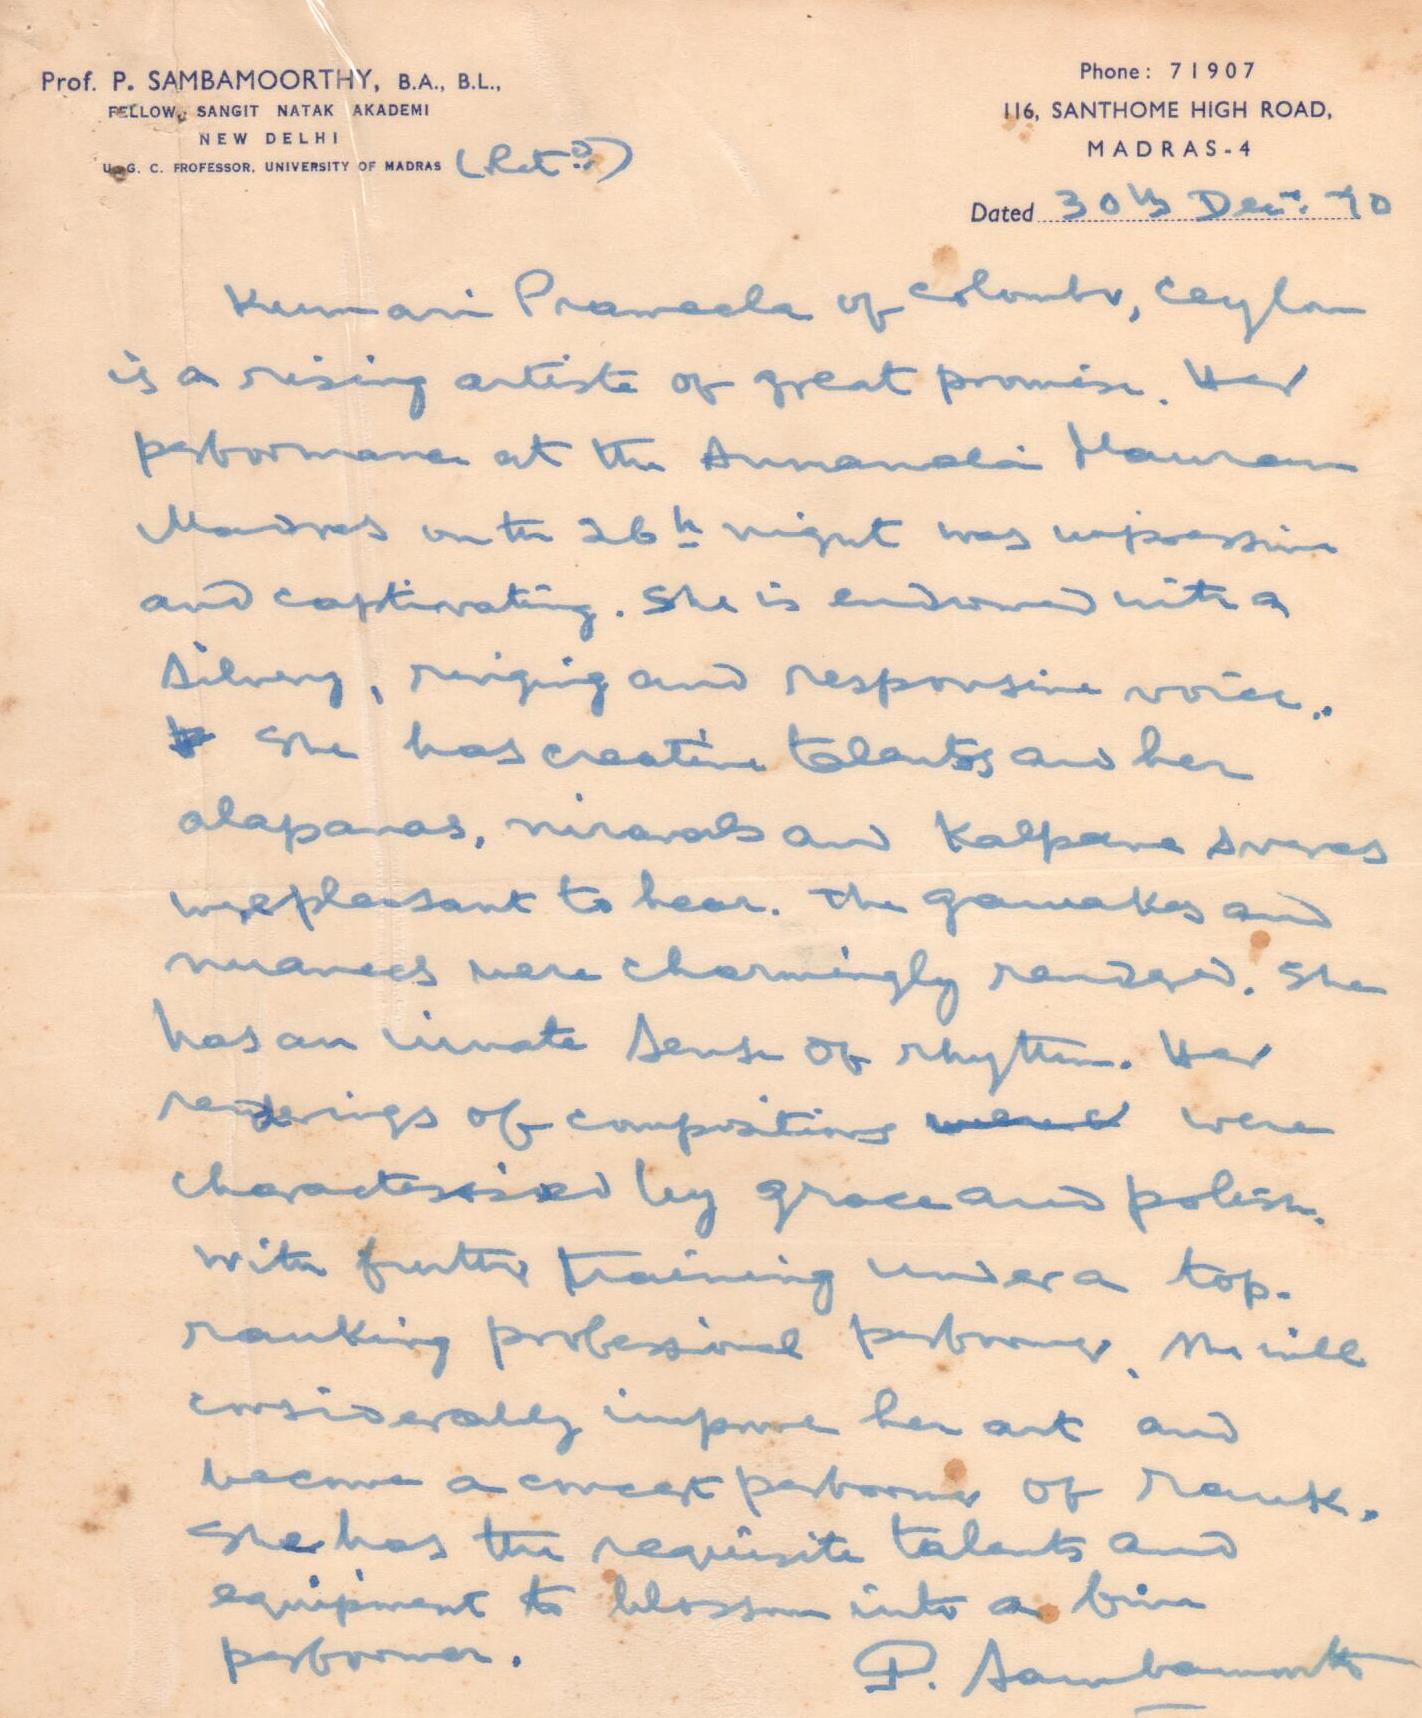 Prof. P. SAMBAMOORTHY, B.A., B.L.,
FELLOW, SANGIT NATAK AKADEMI
NEW DELHI
U. G. C. PROFESSOR, UNIVERSITY OF MADRAS (Retd.)
Phone: 71907
116, SANTHOME HIGH ROAD,
MADRAS-4
Dated 30th Dec. 70
Kumari Prameela of Colombo, Ceylon
is a rising artiste of great promise. Her
performance at the Annamalai Manram
Madras on the 26th night was impressive
and captivating. She is endowed with a
silvery, ringing and responsive voice.
She has creative talents and her
alapanas, niravals and Kalpana svaras
were pleasant to hear. The gamakas and
nuances were charmingly rendered. She
has an innate sense of rhythm. Her
renderings of compositions were
characterised by grace and polish.
With further training under a top-
ranking professional performer, she will
considerably improve her art and
become a concert performer of rank.
She has the requisite talents and
equipment to blossom into a fine
performer.
P. Sambamoorthy